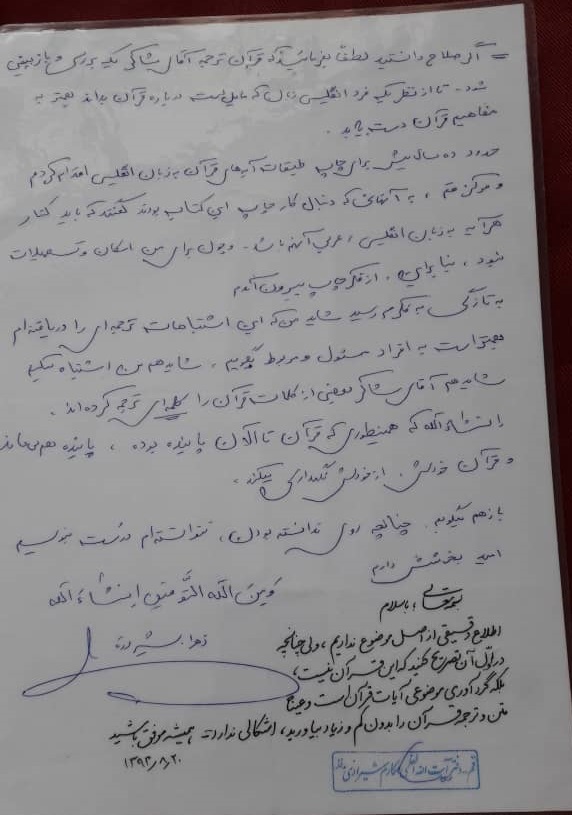 = اگر صلاح دانستید لطف بفرمائید که قرآن ترجمه آقای شاکر یک بررسی و بازبینی
شود. تا از نظر یک فرد انگلیسی زبان که مایل است درباره قرآن بداند بهتر به
مفاهیم قرآن دست یابد.
حدود ده سال پیش برای چاپ طبقات آیه‌های قرآن به زبان انگلیسی اقدام کردم
و به آنهائی که دنبال کار چاپ این کتاب بودند گفتند که باید کنار
هر آیه به زبان انگلیسی، عربی آنهم باشد. و چون برای من امکان و تسهیلات
نبود، بنابراین، از فکر چاپ بیرون آمدم
به تازگی به فکرم رسید شاید من که این اشتباهات ترجمه‌ای را دریافته‌ام
بهتر است به افراد مسئول و مربوط بگویم، شاید هم من اشتباه میکنم
شاید هم آقای شاکر بعضی از کلمات قرآن را کلمه‌ای ترجمه کرده‌اند.
انشاء الله که همینطوری که قرآن تا الان پاینده بوده، پاینده هم می‌ماند
و قرآن خودش، از خودش نگهداری میکند.
باز هم میگویم. چنانچه روی ندانسته بودن، نتوانسته‌ام درست بنویسم
امید بخشش دارم
و من الله التوفیق إنشاء الله
زهرا
بسمه تعالی، باسلام
اطلاع دقیقی از اصل موضوع نداریم، ولی چنانچه
در اول آن تصریح کنید که این قرآن نیست،
بلکه گردآوری موضوعی آیات قرآن است و عیناً
متن و ترجمه قرآن را بدون کم و زیاد بیاورید، اشکالی ندارد. همیشه موفق باشید
۱۳۹۲/۸/۲۰
قم - دفتر آیت الله العظمی مکارم شیرازی